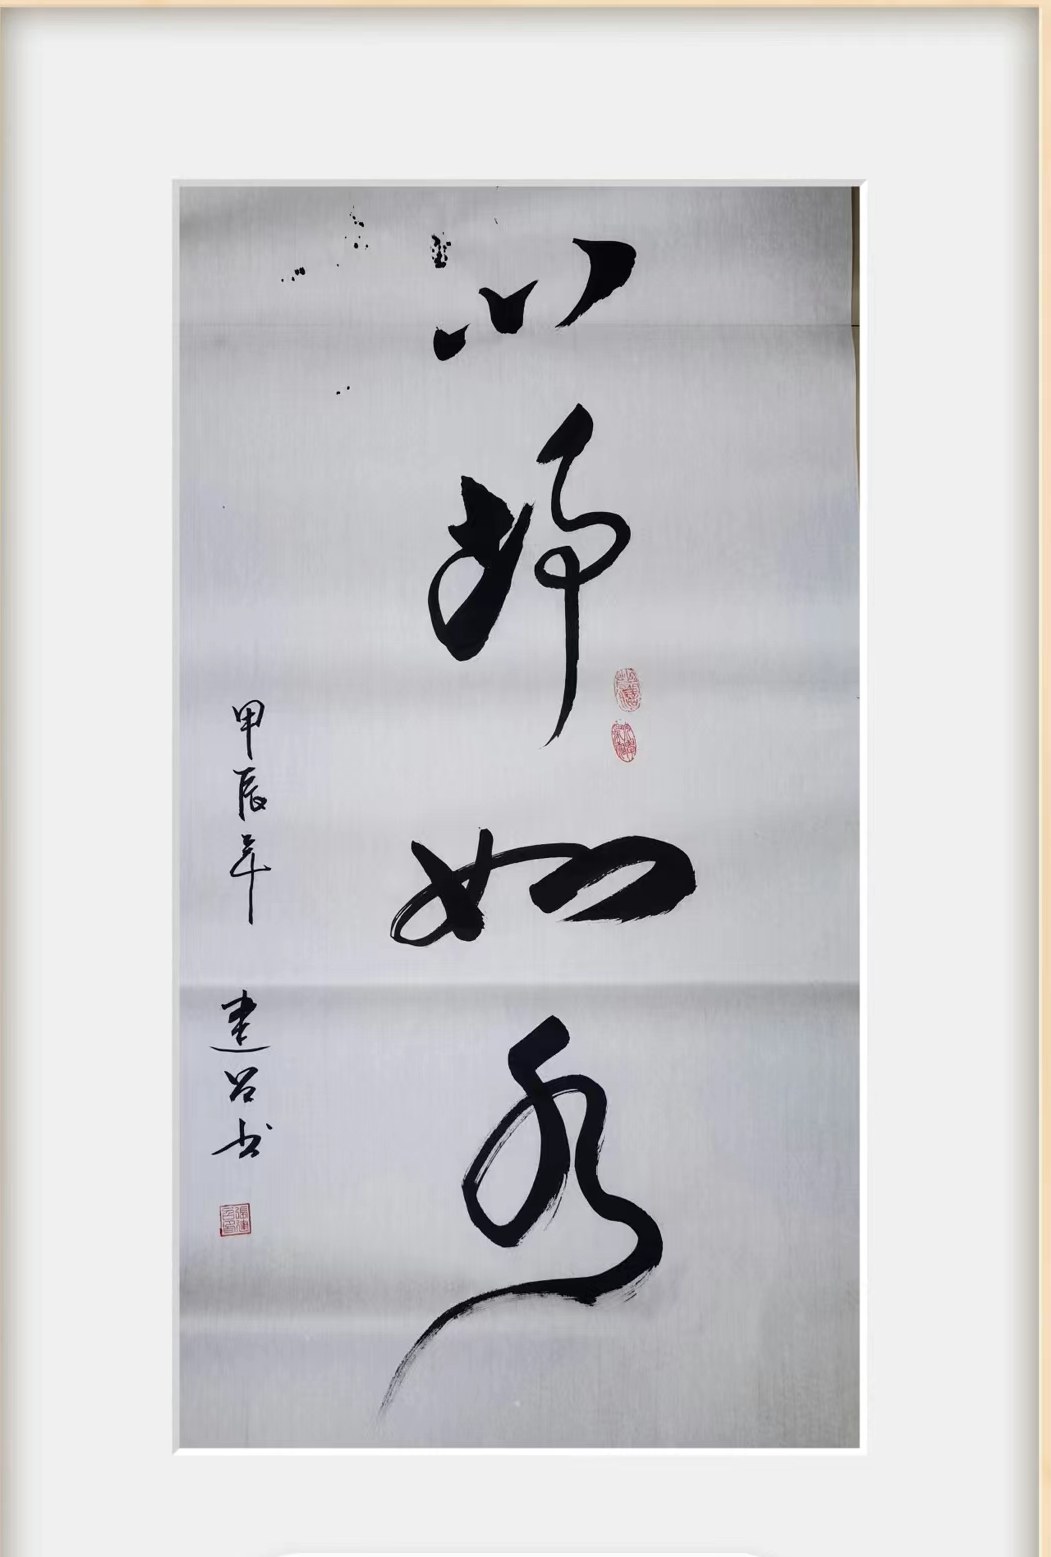 心静如水
甲辰年 建吕书